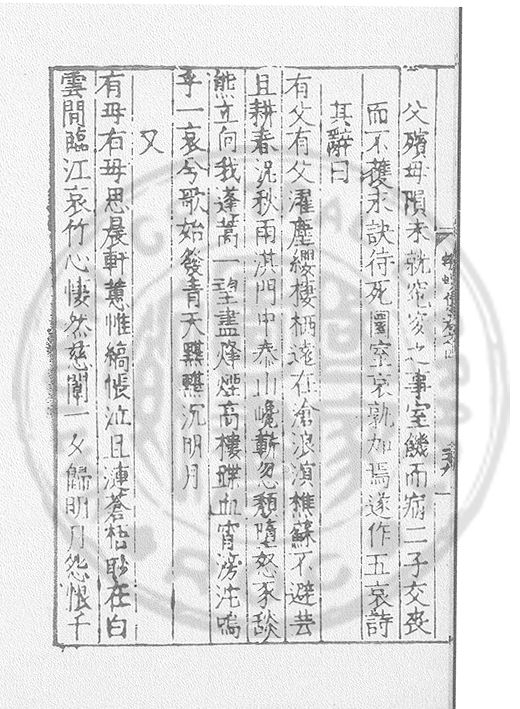 父殯母隕未就窀穸之事室饑而病二子交喪
而不獲永訣待死圜室哀孰加焉遂作五哀詩
其辭曰
有父有父濯塵纓棲栖遠在滄浪濵樵蘇不避芸
且耕春泥秋雨淇門中泰山巉嶄忽頽墮怒豕談
熊立向我蓬蒿一望盡烽煙高樓蹀血宵滂沱嗚
乎一哀兮歌始發青天黯黯沉明月
又
有母有母思晨軒蕙帷縞帳泣且漣蒼梧眇在白
雲間臨江哀竹心悽然慈闈一夕歸明月怨恨千